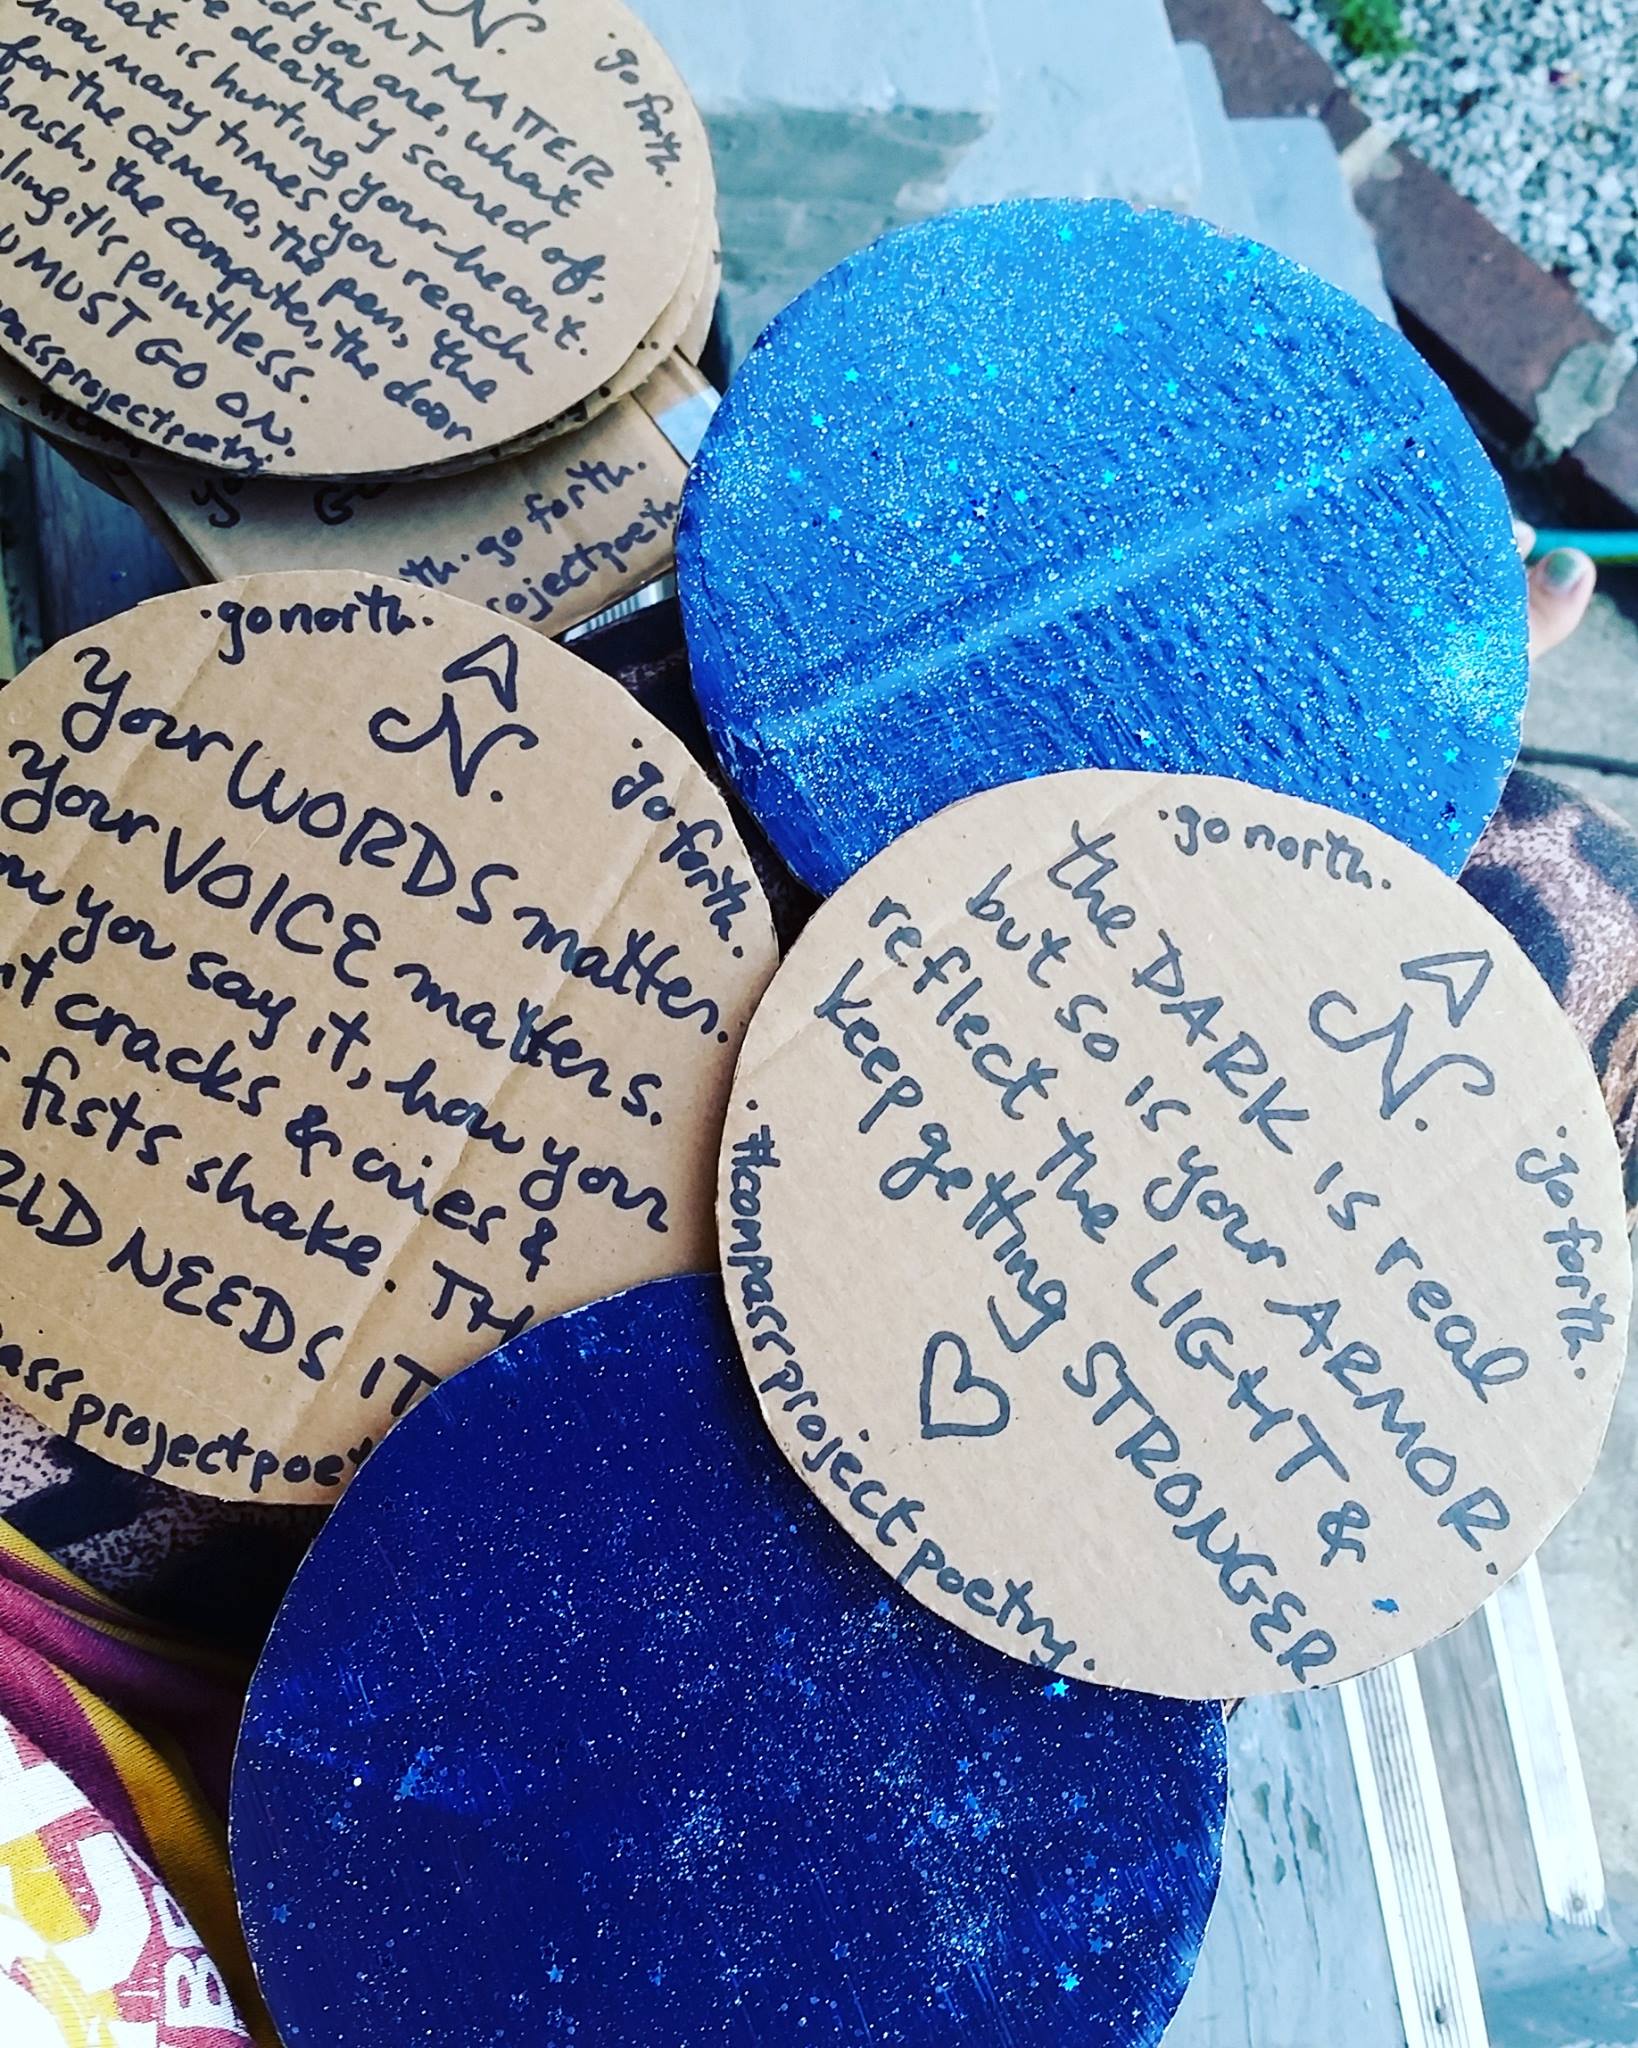 N.
·go forth.
ESN'T MATTER
you are, what
deathly scared of,
is hurting your heart.
how many times you reach
for the camera, the pen, the
brush, the computer, the door
it's pointless.
MUST GO ON.
passprojectpoetry.
go forth.
·go north.
N.
·go forth.
your WORDS matter.
your VOICE matters.
you say it, how your
cracks & cries &
fists shake.
NEEDS IT
assprojectpoet
·go north.
N.
·go forth.
the DARK is real
but so is your ARMOR.
reflect the LIGHT &
keep getting STRONGER
·#compassprojectpoetry.